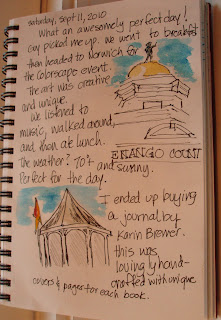 saturday, sept 11, 2010
What an awesomely perfect day!
Guy picked me up. we went to breakfast
then headed to Norwich for
the Colorscape event.
The art was creative
and unique.
We listened to
music, walked around,
and then, ate lunch.
The weather? 70's and sunny.
Perfect for the day.
I ended up buying
a journal by
Karin Bremer.
this was
lovingly hand-
crafted with unique
covers & pages for each book.